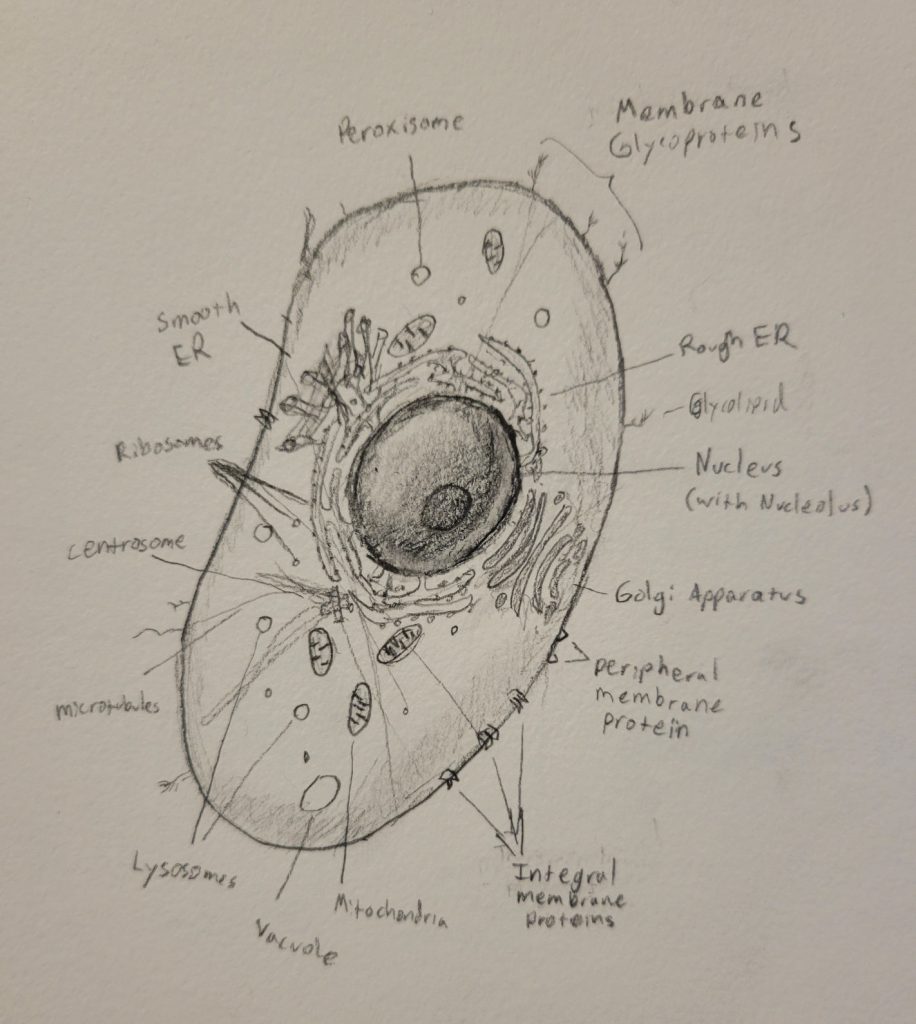 Peroxisome
Membrane
Glycoproteins
Smooth
ER
Rough ER
Glycolipid
Ribosomes
Nucleus
(with Nucleolus)
Centrosome
Golgi Apparatus
Peripheral
membrane
protein
microtubules
Lysosomes
Mitochondria
Vacuole
Integral
membrane
proteins